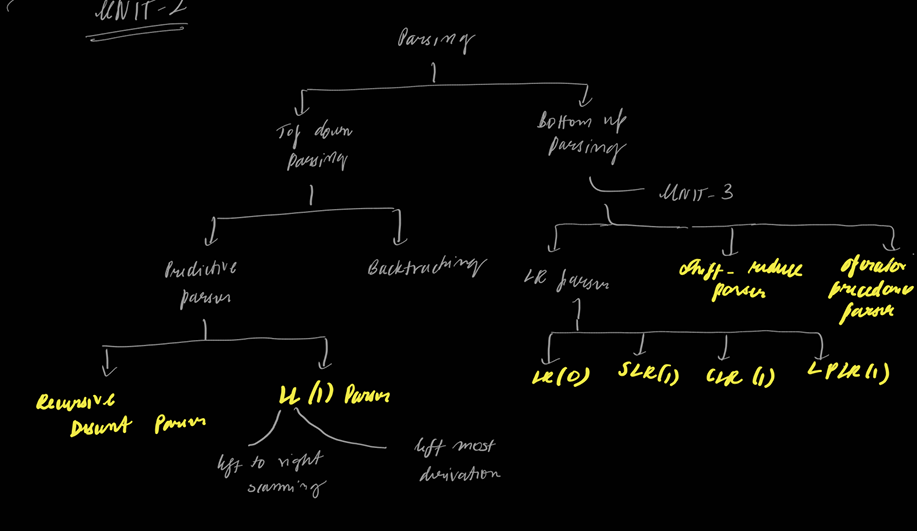 UNIT-2
Parsing
Top down
Parsing
Bottom up
Parsing
UNIT-3
Predictive
parser
Backtracking
LR parser
shift-reduce
parser
operator
precedence
parser
Recursive
Descent Parser
LL (1) Parser
LR(0)
SLR(1)
CLR (1)
LALR(1)
left to right
scanning
left most
derivation